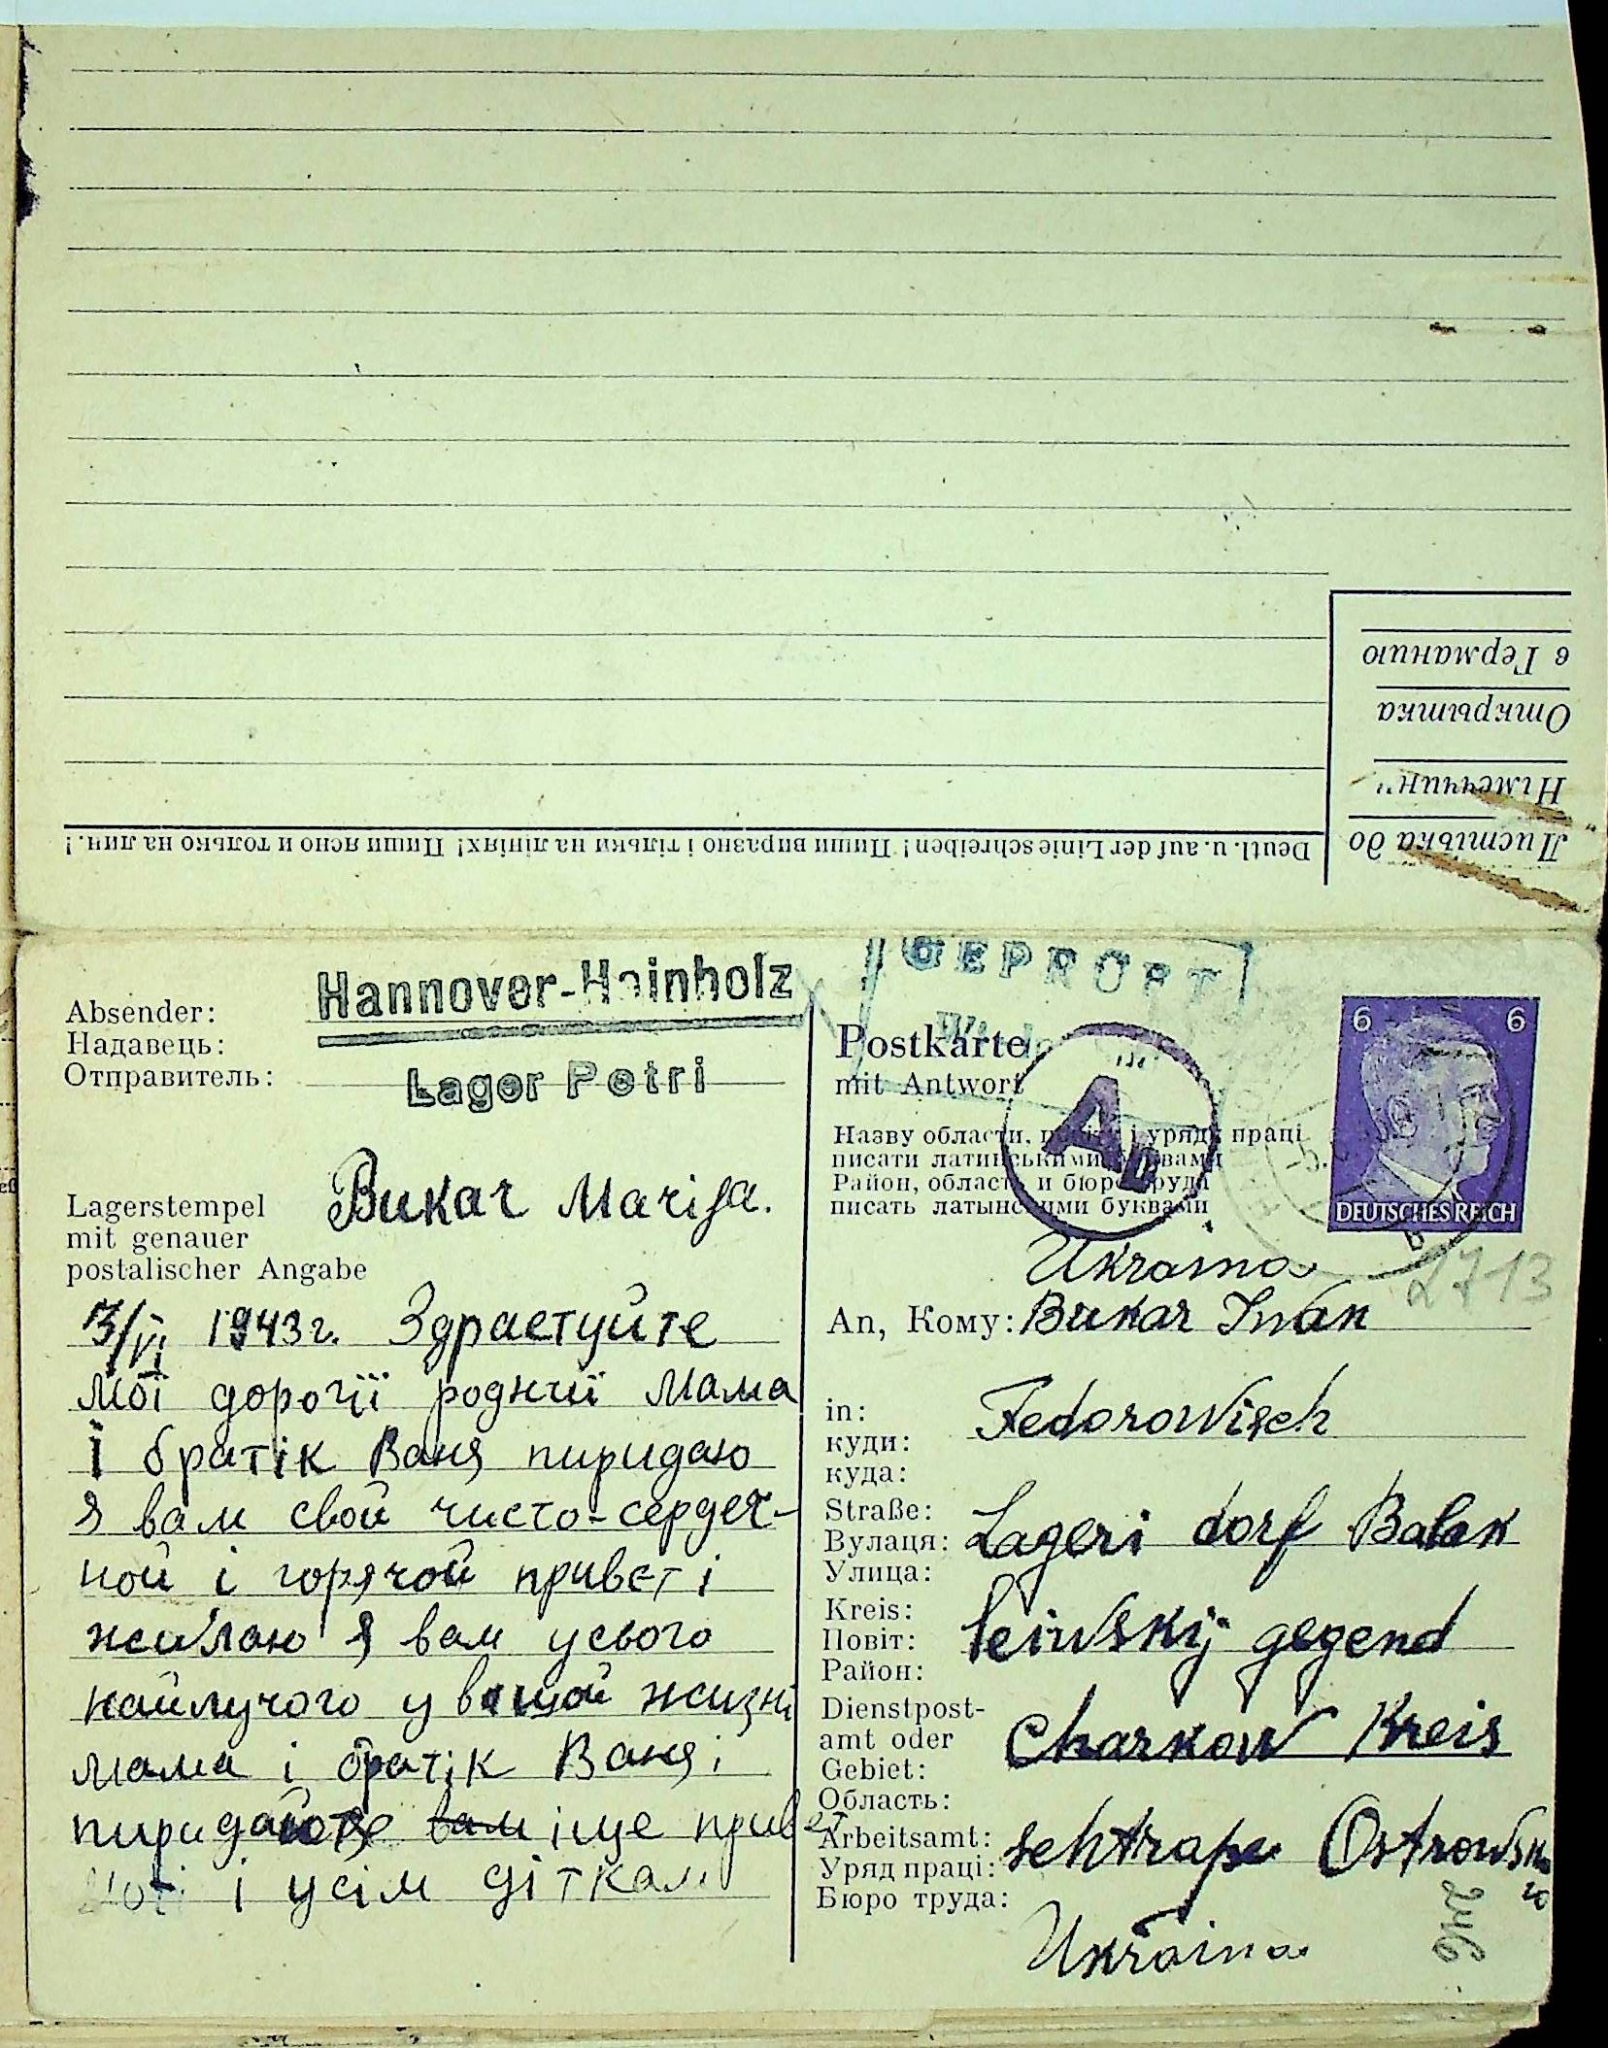 в Германию
Открытка
Німеччини
Листівка до
Deutl. u. auf der Linie schreiben! Пиши виразно і тільки на лініях! Пиши ясно и только на лин.!
GEPRÜFT
Absender:
Надавець:
Отправитель:
Hannover-Hainholz
Lager Petri
Lagerstempel
mit genauer
postalischer Angabe
Bukar Marija.
/VI 1943г. Здраєтуйте
мої дорогії роднії мама
і братік Ваня пиридаю
я вам свой чисто-сердеч-
ной і горячой привєт і
жилаю я вам усього
найлучого у вашой жизні
мама і братік Ваня і
пиридайоте вам іще привєт
і усім діткам
Postkarte
mit Antwort
Назву области, повіту і уряду праці
писати латинськими буквами
Район, область и бюро труда
писать латынскими буквами
6 6
DEUTSCHES REICH
b
2713
Ukraina
An, Кому: Bukar Iwan
in:
куди:
куда:
Fedorowisch
Straße:
Вулаця:
Улица:
Lageri dorf Balak
Kreis:
Повіт:
Район:
leiwskij gegend
Dienstpost-
amt oder
Gebiet:
Область:
Charkow Kreis
Arbeitsamt:
Уряд праці:
Бюро труда:
schtrape Ostrowsko
go
Ukraina
246